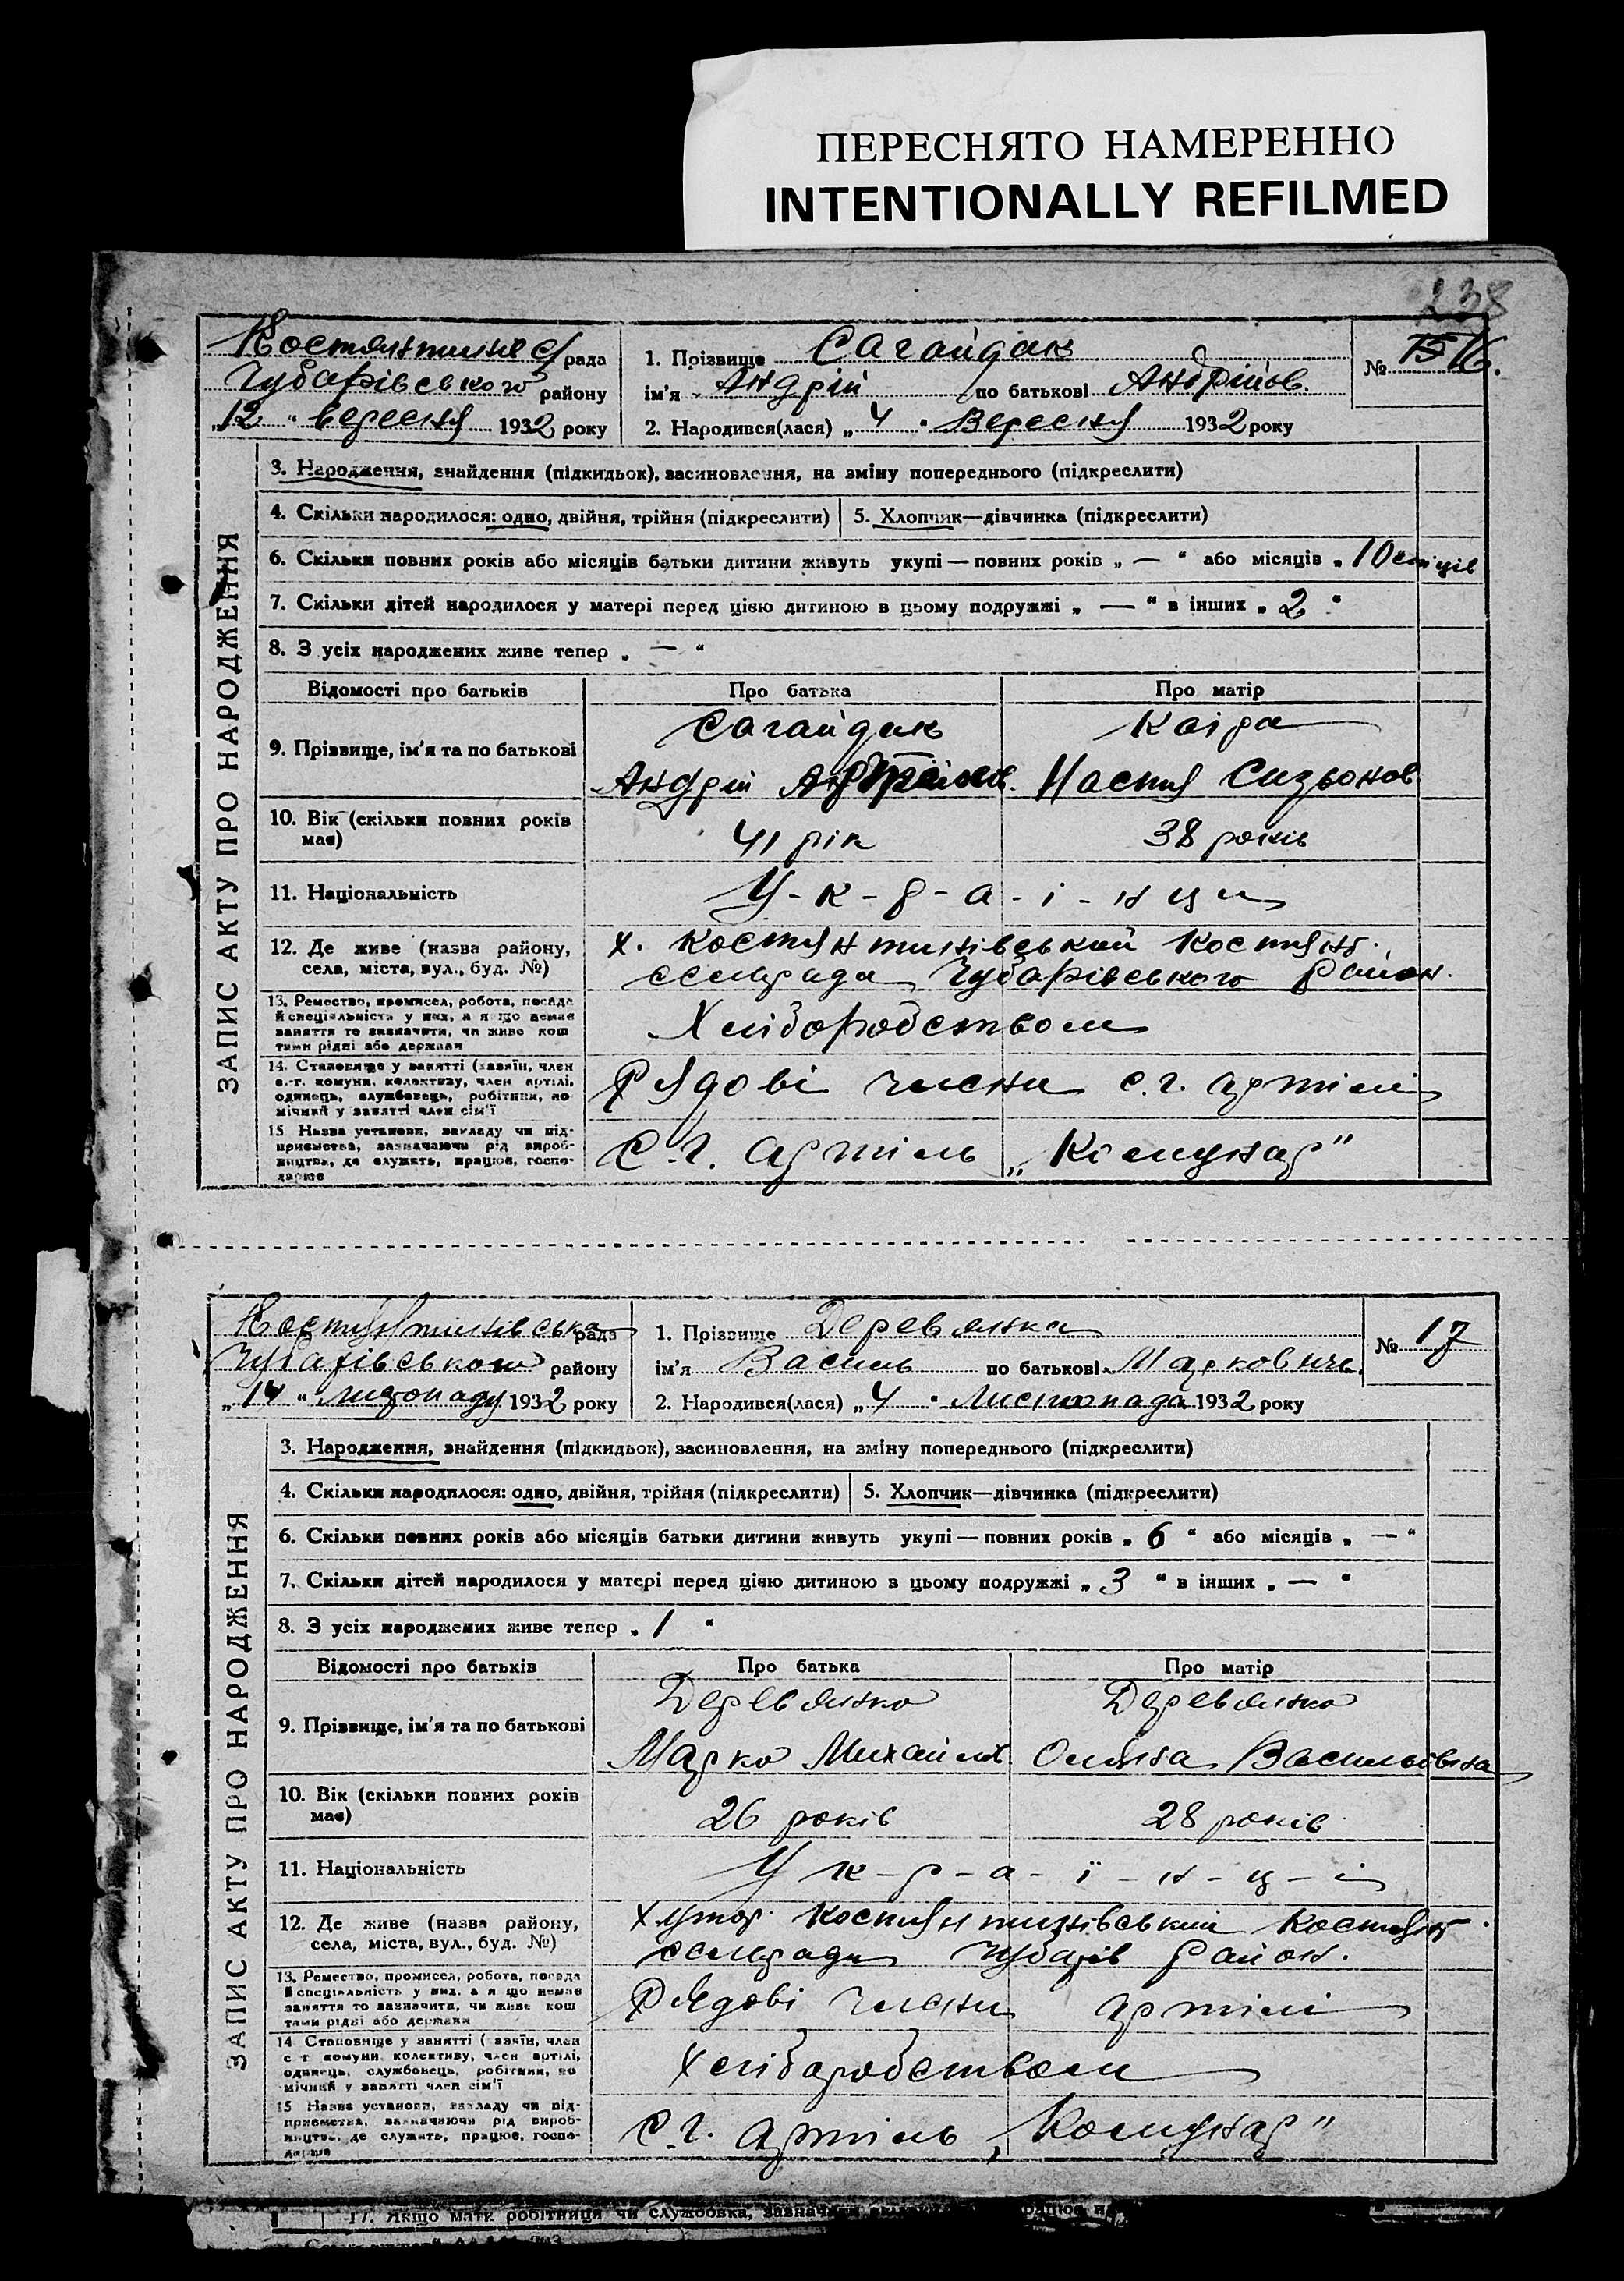 ПЕРЕСНЯТО НАМЕРЕННО
INTENTIONALLY REFILMED
238
ЗАПИС АКТУ ПРО НАРОДЖЕННЯ
рада
Чубарівського району
„12“ вересня 1932 року
1. Прізвище Сагайдак
ім'я Андрій по батькові Андрійов.
2. Народився(лася) „4“ Вересня 1932 року
№ 16.
3. Народження, знайдення (підкидьок), засиновлення, на зміну попереднього (підкреслити)
4. Скільки народилося: одно, двійня, трійня (підкреслити)
5. Хлопчик—дівчинка (підкреслити)
6. Скільки повних років або місяців батьки дитини живуть укупі — повних років „ — “ або місяців „ 10
7. Скільки дітей народилося у матері перед цією дитиною в цьому подружжі „ — “ в інших „ 2 “
8. З усіх народжених живе тепер „ — “
Відомості про батьків
Про батька
Про матір
9. Прізвище, ім'я та по батькові
Сагайдак
Андрій
Каіра
Настя Сизьонов
10. Вік (скільки повних років має)
41 рік
38 років
11. Національність
У-к-р-а-ї-нци
12. Де живе (назва району,
села, міста, вул., буд. №)
х. Костянтинівський Костянт.
сельрада Чубарівського район.
13. Ремество, промисел, робота, посада
й спеціяльність у них, а якщо немає
заняття то зазначити, чи живе кош
тами рідні або держави
Хліборобством
14. Становище у занятті (хазяїн, член
с.-г. комуни, колективу, член артілі,
одинець, службовець, робітник, по
мічний у занятті член сім'ї
Рядові члени с.г. артілі
15 Назва установи, закладу чи під-
приємства, зазначаючи рід вироб-
ництва, де служить, працює, госпо-
дарює
С.г. артіль „Комунар"
ЗАПИС АКТУ ПРО НАРОДЖЕННЯ
Костянтинівська рада
Чубарівського району
„14“ листопаду 1932 року
1. Прізвище Деревянка
ім'я Василь по батькові Маркович.
2. Народився(лася) „4“ Листопада 1932 року
№ 17
3. Народження, знайдення (підкидьок), засиновлення, на зміну попереднього (підкреслити)
4. Скільки народилося: одно, двійня, трійня (підкреслити)
5. Хлопчик—дівчинка (підкреслити)
6. Скільки повних років або місяців батьки дитини живуть укупі — повних років „ 6 “ або місяців „ — “
7. Скільки дітей народилося у матері перед цією дитиною в цьому подружжі „ 3 “ в інших „ — “
8. З усіх народжених живе тепер „ 1 “
Відомості про батьків
Про батька
Про матір
9. Прізвище, ім'я та по батькові
Деревянко
Марко Михайлов
Деревянко
Васильовна
10. Вік (скільки повних років
має)
26 років
28 років
11. Національність
Ук-р-а-ї-н-ц-і
12. Де живе (назва району,
села, міста, вул., буд. №)
Хутор. Костянтинівський Костянт.
сельради Чубарів район.
13. Ремество, промисел, робота, посада
й спеціяльність у них, а якщо немає
заняття то зазначити, чи живе кош
тами рідні або держави
Рядові члени артілі
14 Становище у занятті (хазяїн, член
с г комуни, колективу, член артілі,
одинець, службовець, робітник, по
мічний у занятті член сім'ї
Хліборобством
15 Назва установи, закладу чи під-
приємства, зазначаючи рід вироб-
ництва, де служить, працює, госпо-
дарює
С.г. артіль „Комунар"
17. Якщо мати робітниця чи службовка,